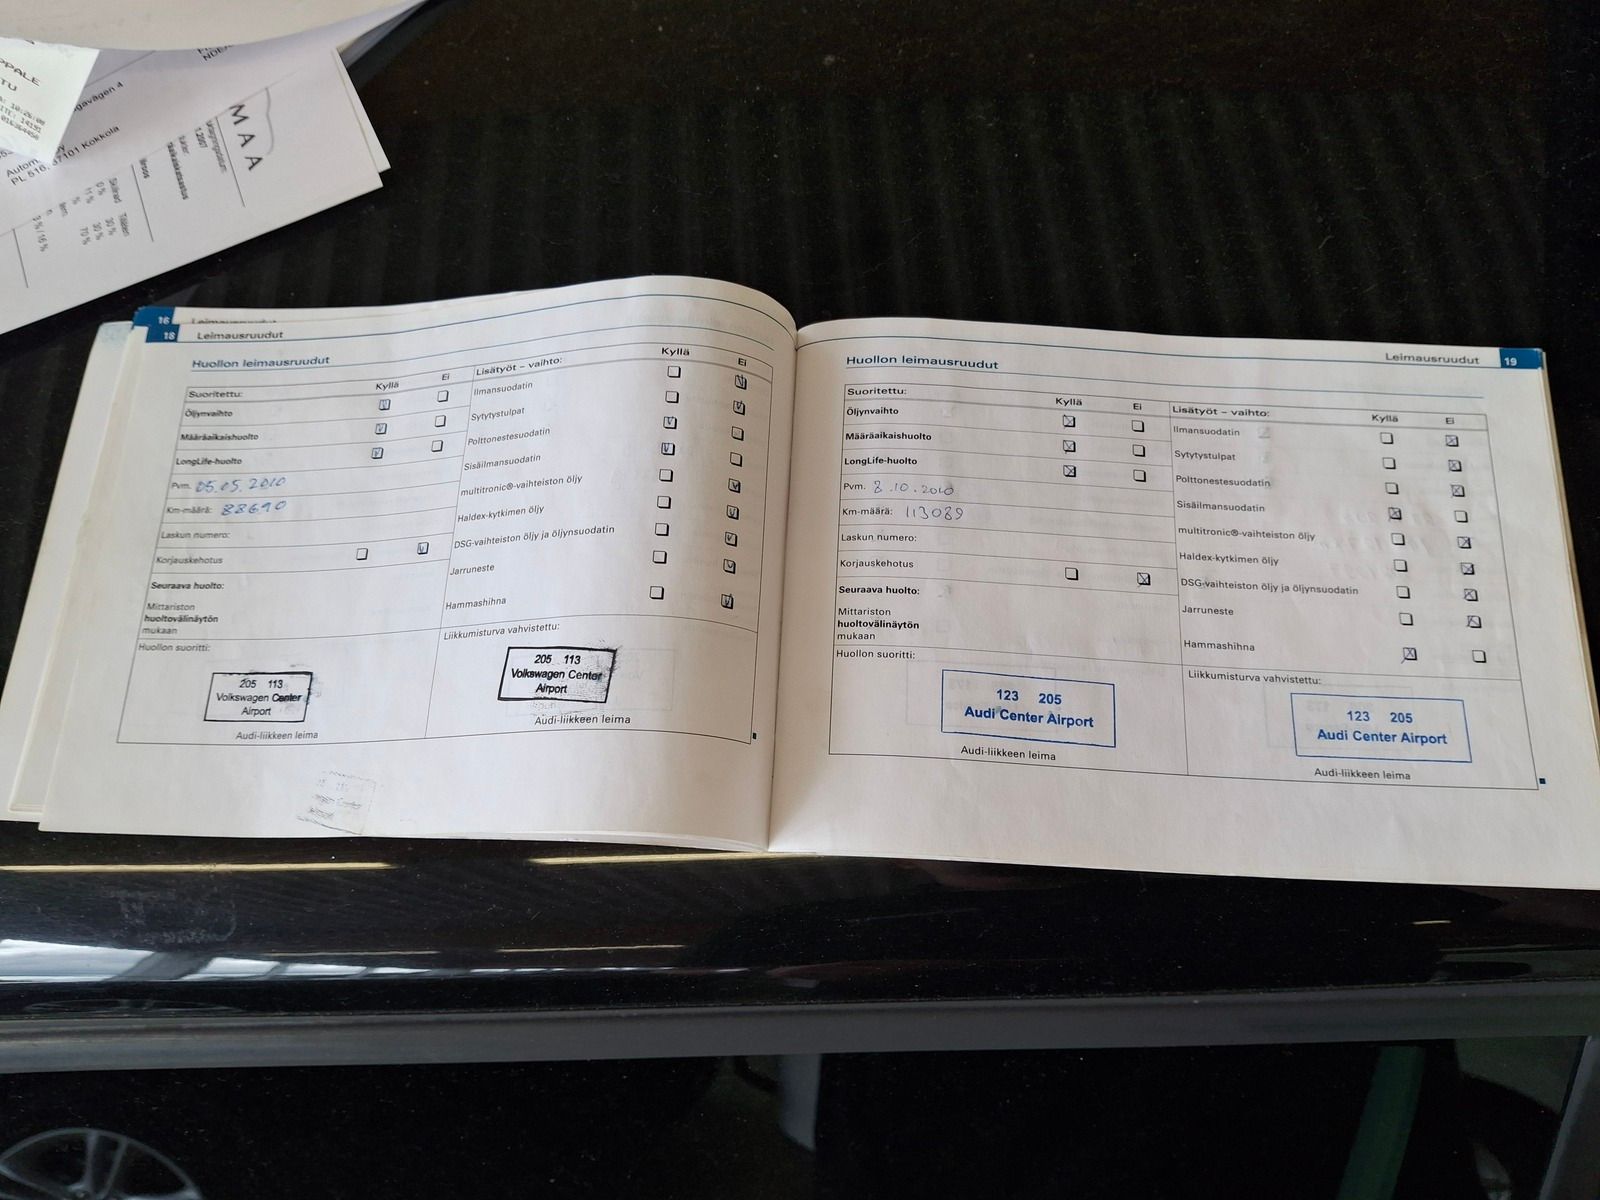 PPALE
TU
gavägen 4
PL 516, 67101 Kokkola
MAA
1.2007
16 Leimausruudut
18 Leimausruudut
Huollon leimausruudut
Suoritettu: Kyllä Ei
Öljynvaihto
Määräaikaishuolto
LongLife-huolto
Pvm. 05.05.2010
Km-määrä: 88690
Laskun numero:
Korjauskehotus
Seuraava huolto:
Mittariston
huoltovälinäytön
mukaan
Huollon suoritti:
205 113
Volkswagen Center
Airport
Audi-liikkeen leima
Lisätyöt – vaihto: Kyllä Ei
Ilmansuodatin
Sytytystulpat
Polttonestesuodatin
Sisäilmansuodatin
multitronic®-vaihteiston öljy
Haldex-kytkimen öljy
DSG-vaihteiston öljy ja öljynsuodatin
Jarruneste
Hammashihna
Liikkumisturva vahvistettu:
205 113
Volkswagen Center
Airport
Audi-liikkeen leima
Leimausruudut 19
Huollon leimausruudut
Suoritettu: Kyllä Ei
Öljynvaihto
Määräaikaishuolto
LongLife-huolto
Pvm. 8.10.2010
Km-määrä: 113089
Laskun numero:
Korjauskehotus
Seuraava huolto:
Mittariston
huoltovälinäytön
mukaan
Huollon suoritti:
123 205
Audi Center Airport
Audi-liikkeen leima
Lisätyöt – vaihto: Kyllä Ei
Ilmansuodatin
Sytytystulpat
Polttonestesuodatin
Sisäilmansuodatin
multitronic®-vaihteiston öljy
Haldex-kytkimen öljy
DSG-vaihteiston öljy ja öljynsuodatin
Jarruneste
Hammashihna
Liikkumisturva vahvistettu:
123 205
Audi Center Airport
Audi-liikkeen leima